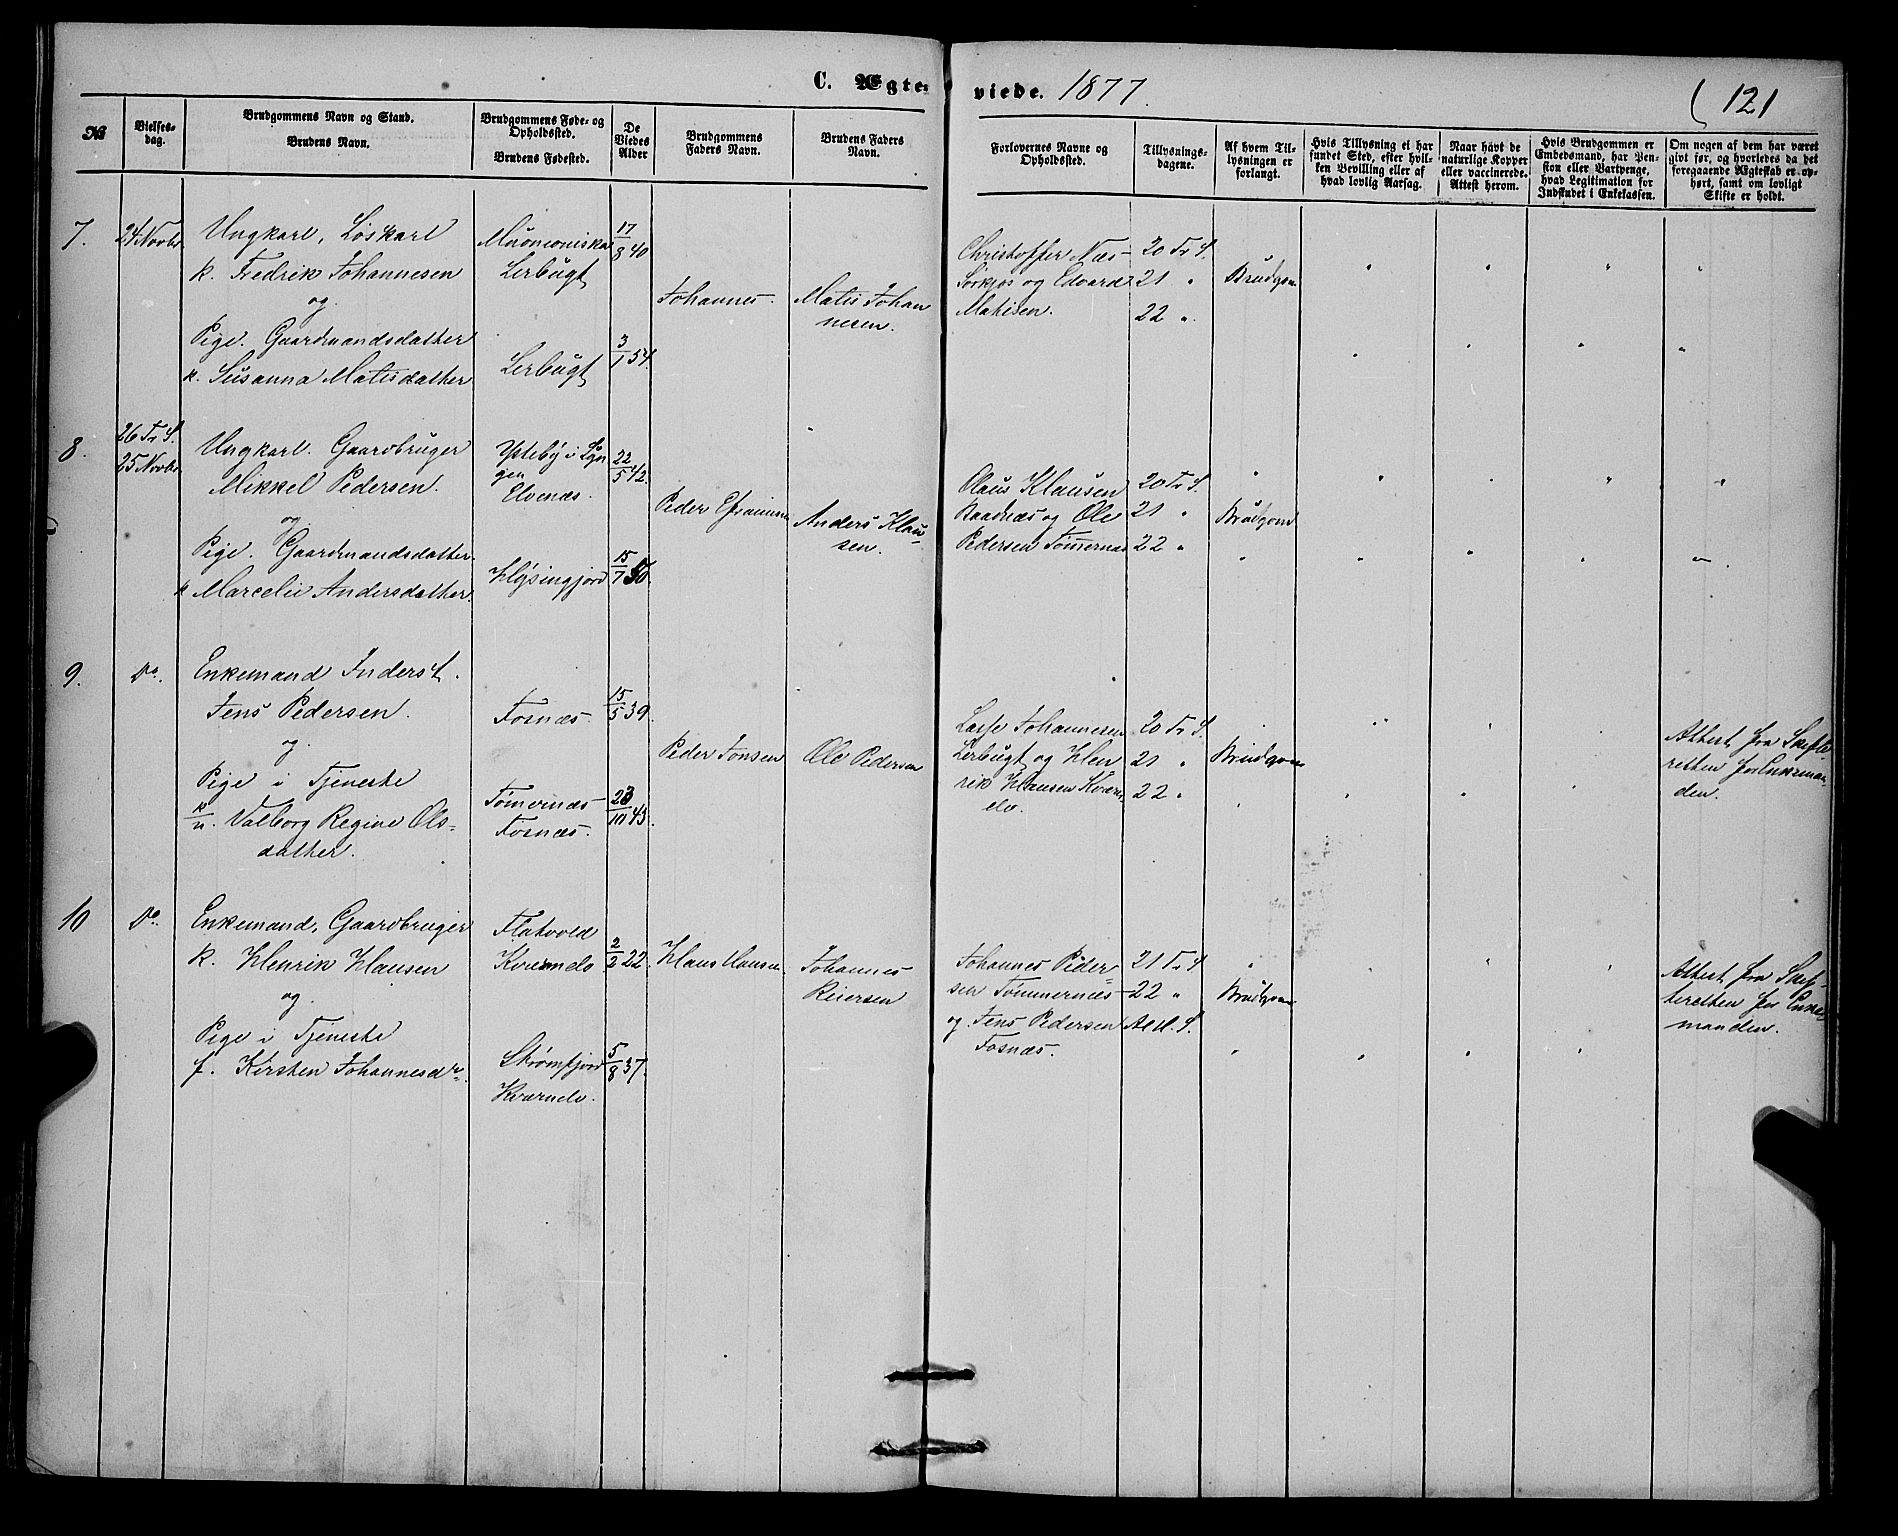 C. Ægte-
viede. 1877.
( 121
No
Vielses-
dag.
Brudgommens Navn og Stand.
Brudens Navn.
Brudgommens Føde- og
Opholdssted.
Brudens Fødested.
De
Viedes
Alder
Brudgommens
Faders Navn.
Brudens Faders
Navn.
Forlovernes Navne og
Opholdssted.
Tillysnings-
dagene.
Af hvem Til-
lysningen er
forlangt.
Hvis Tillysning ei har
fundet Sted, efter hvil-
ken Bevilling eller af
hvad lovlig Aarsag.
Naar havt de
naturlige Kopper
eller vaccinerede.
Attest herom.
Hvis Brudgommen er
Embedsmand, har Pen-
sion eller Vartpenge,
hvad Legitimation for
Indskudet i Enkekassen.
Om nogen af dem har været
givt før, og hvorledes da det
foregaaende Ægteskab er op-
hørt, samt om lovligt
Skifte er holdt.
7.
24 Novbr
Ungkarl, Løskarl
k. Fredrik Johannesen
og
Pige. Gaardmandsdatter
k. Susanna Matisdatter
Muonioniska
Lerbugt
Lerbugt
17/8 40
3/1 54.
Johannes.
Matis Johan
nesen.
Christoffer Næs-
Sørkjos og Edvard
Matisen.
20 Tr. S.
21 "
22 "
Brudgom
8.
26 Tr. S.
25 Novbr.
Ungkarl. Gaardbruger
Mikkel Pedersen.
og
Pige. Gaardmandsdatter.
k Marcelie Andersdatter.
Ytteby i Lyn
gen
Elvenæs.
Kløsingfjord
22/5 42.
15/7 50.
Peder
Anders Klau-
sen.
Olaus Klausen
Baadnæs og Ole
Pedersen Tømernæs
20 Tr. S.
21 "
22 "
Brudgom
9.
Do.
Enkemand Inderst.
Jens Pedersen.
og
Pige i Tjeneste
k/n. Valborg Regine Ols-
datter.
Fosnæs.
Tømernæs
Fosnæs.
15/5 39.
23/10 43.
Peder Jonsen
Ole Pedersen
Lasse Johannesen
Lerbugt og Hen
rik Hansen Kværn
elv.
20 Tr. S.
21 "
22 "
Brudgom
Attest fra Skifte
retten for Enkeman
den.
10
Do.
Enkemand, Gaardbruger
k. Henrik Hansen
og
Pige i Tjeneste
f. Kirsten Johannesdr.
Flatvold
Kværnelv
Strømfjord
Kværnelv.
2/2 22.
5/8 37.
Hans Hansen
Johannes
Reiersen
Johannes Peder
sen Tømmernæs
og Jens Pedersen
Fosnæs.
21 Tr. S
22 "
Al H. S.
Brudgom
Attest fra Skif-
teretten for Enke-
manden.